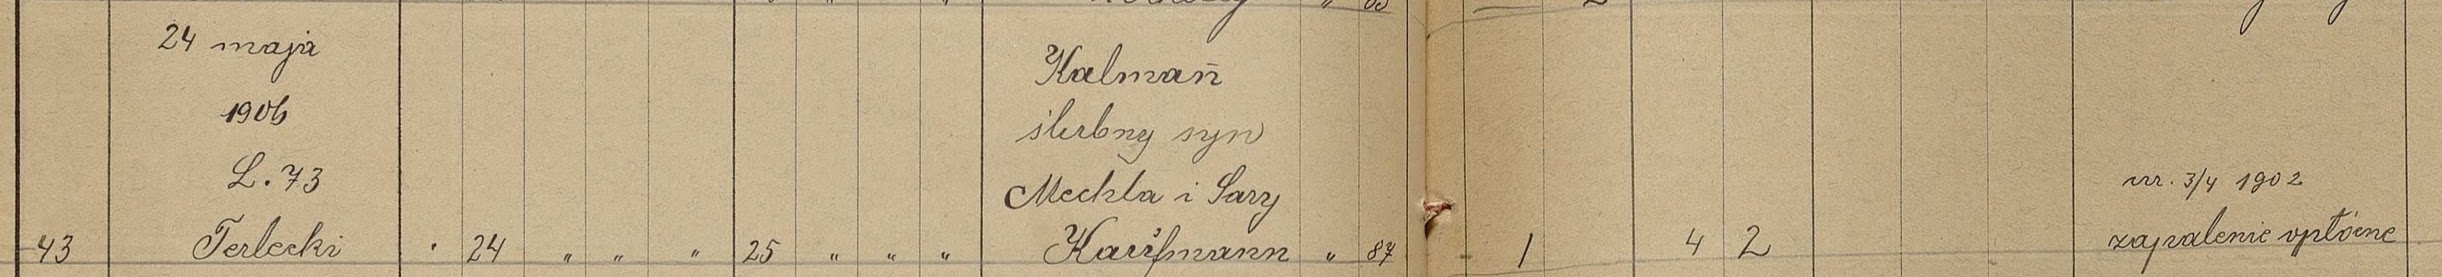 24 maja
Kalmań
1906
ślubny syn
L. 73
Mechla i Sary
ur. 3/4 1902
43 Terlecki " 24 " " " 25 " " " Kaufmann " 87 1 4 2 zapalenie opłócne